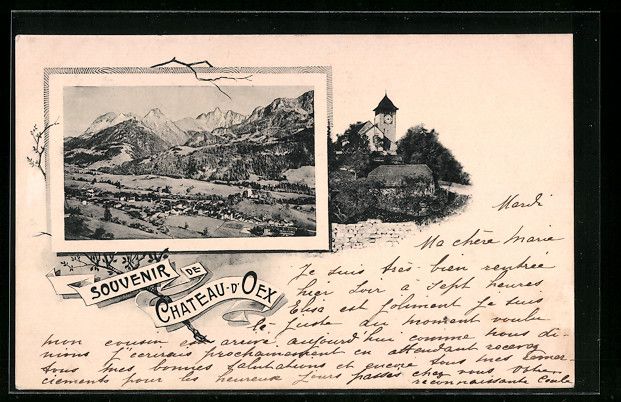 SOUVENIR DE
CHATEAU-D'OEX
Mardi
Ma chère Marie
Je suis très bien rentrée
hier soir à sept heures
Elisa est joliment je suis
là juste au moment voulu
mon cousin est arrivé aujourd'hui comme nous di-
nions j'écrirais prochainement en attendant recevez
tous mes bonnes salutations et encore tous mes remer-
ciements pour les heureux jours passés chez vous. Votre
reconnaissante